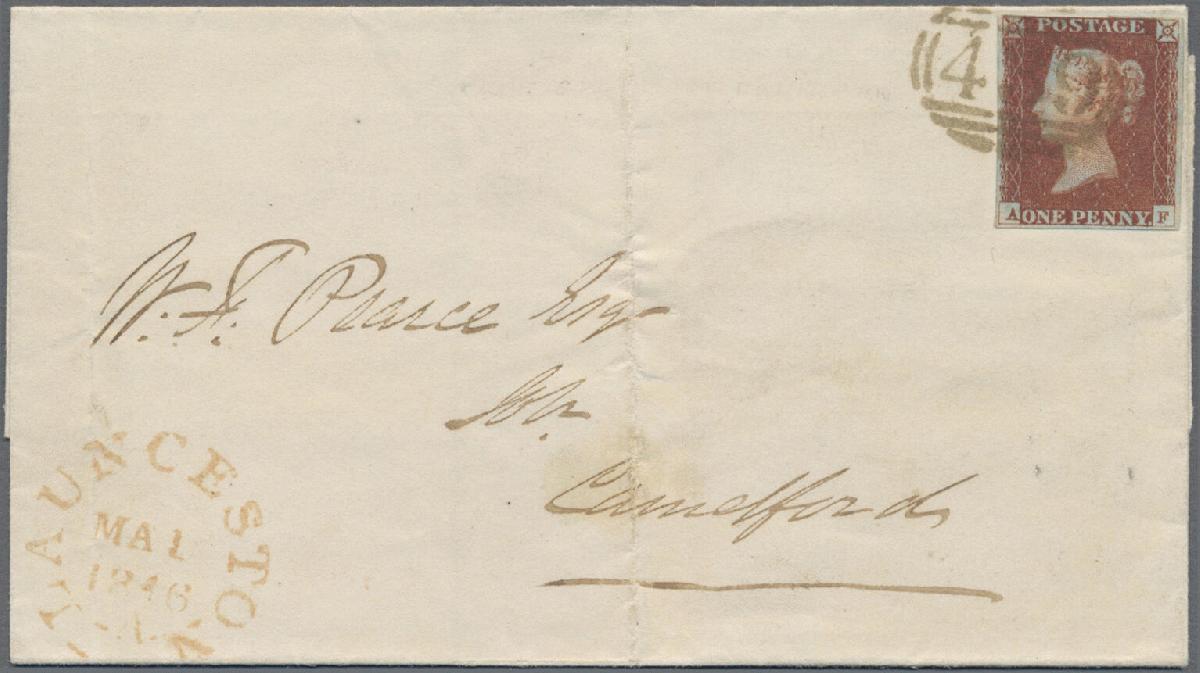 POSTAGE
4
A ONE PENNY. F
W. F. Pearce Esqr
Solr.
Camelford
LAUNCESTON
MA 1
1846